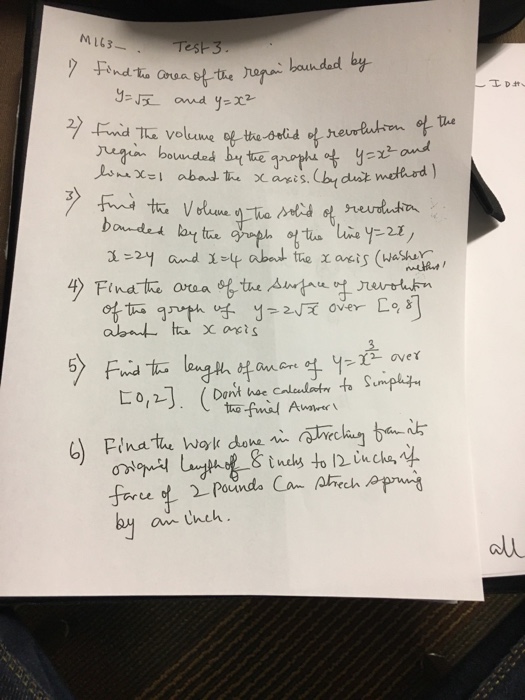 M163- .
Test 3.
1) Find the area of the region bounded by
y=√x and y=x²
2) Find the volume of the solid of revolution of the
region bounded by the graphs of y=x² and
line x=1 about the x axis. (by disk method)
3) Find the Volume of the solid of revolution
bounded by the graph of the line y=2x,
x=2y and x=4 about the x axis (washer
method)
4) Find the area of the surface of revolution
of the graph of y=2√x over [0,8]
about the x axis
5) Find the length of an arc of y=x^(3/2) over
[0,2]. (Don't use calculator to Simplify
the final Answer)
6) Find the Work done in streching from its
original length of 8 inches to 12 inches, if
force of 2 Pounds Can strech spring
by an inch.
- ID#
all